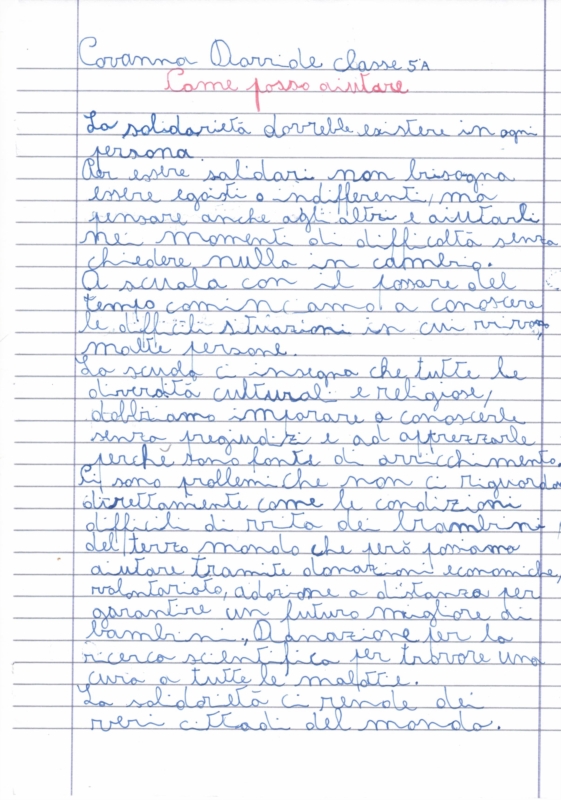 Covanna Davide classe 5A
Come posso aiutare
La solidarietà dovrebbe esistere in ogni
persona.
Per essere solidari non bisogna
essere egoisti o indifferenti, ma
pensare anche agli altri e aiutarli
nei momenti di difficoltà senza
chiedere nulla in cambio.
A scuola con il passare del
tempo cominciamo a conoscere
le difficili situazioni in cui vivono
molte persone.
La scuola ci insegna che tutte le
diversità culturali e religiose,
dobbiamo imparare a conoscerle
senza pregiudizi e ad apprezzarle
perché sono fonte di arricchimento.
Ci sono problemi che non ci riguardano
direttamente come le condizioni
difficili di vita dei bambini
del terzo mondo che però possiamo
aiutare tramite donazioni economiche,
volontariato, adozione a distanza per
garantire un futuro migliore di
bambini, Donazione per la
ricerca scientifica per trovare una
cura a tutte le malattie.
La solidarietà ci rende dei
veri cittadi del mondo.